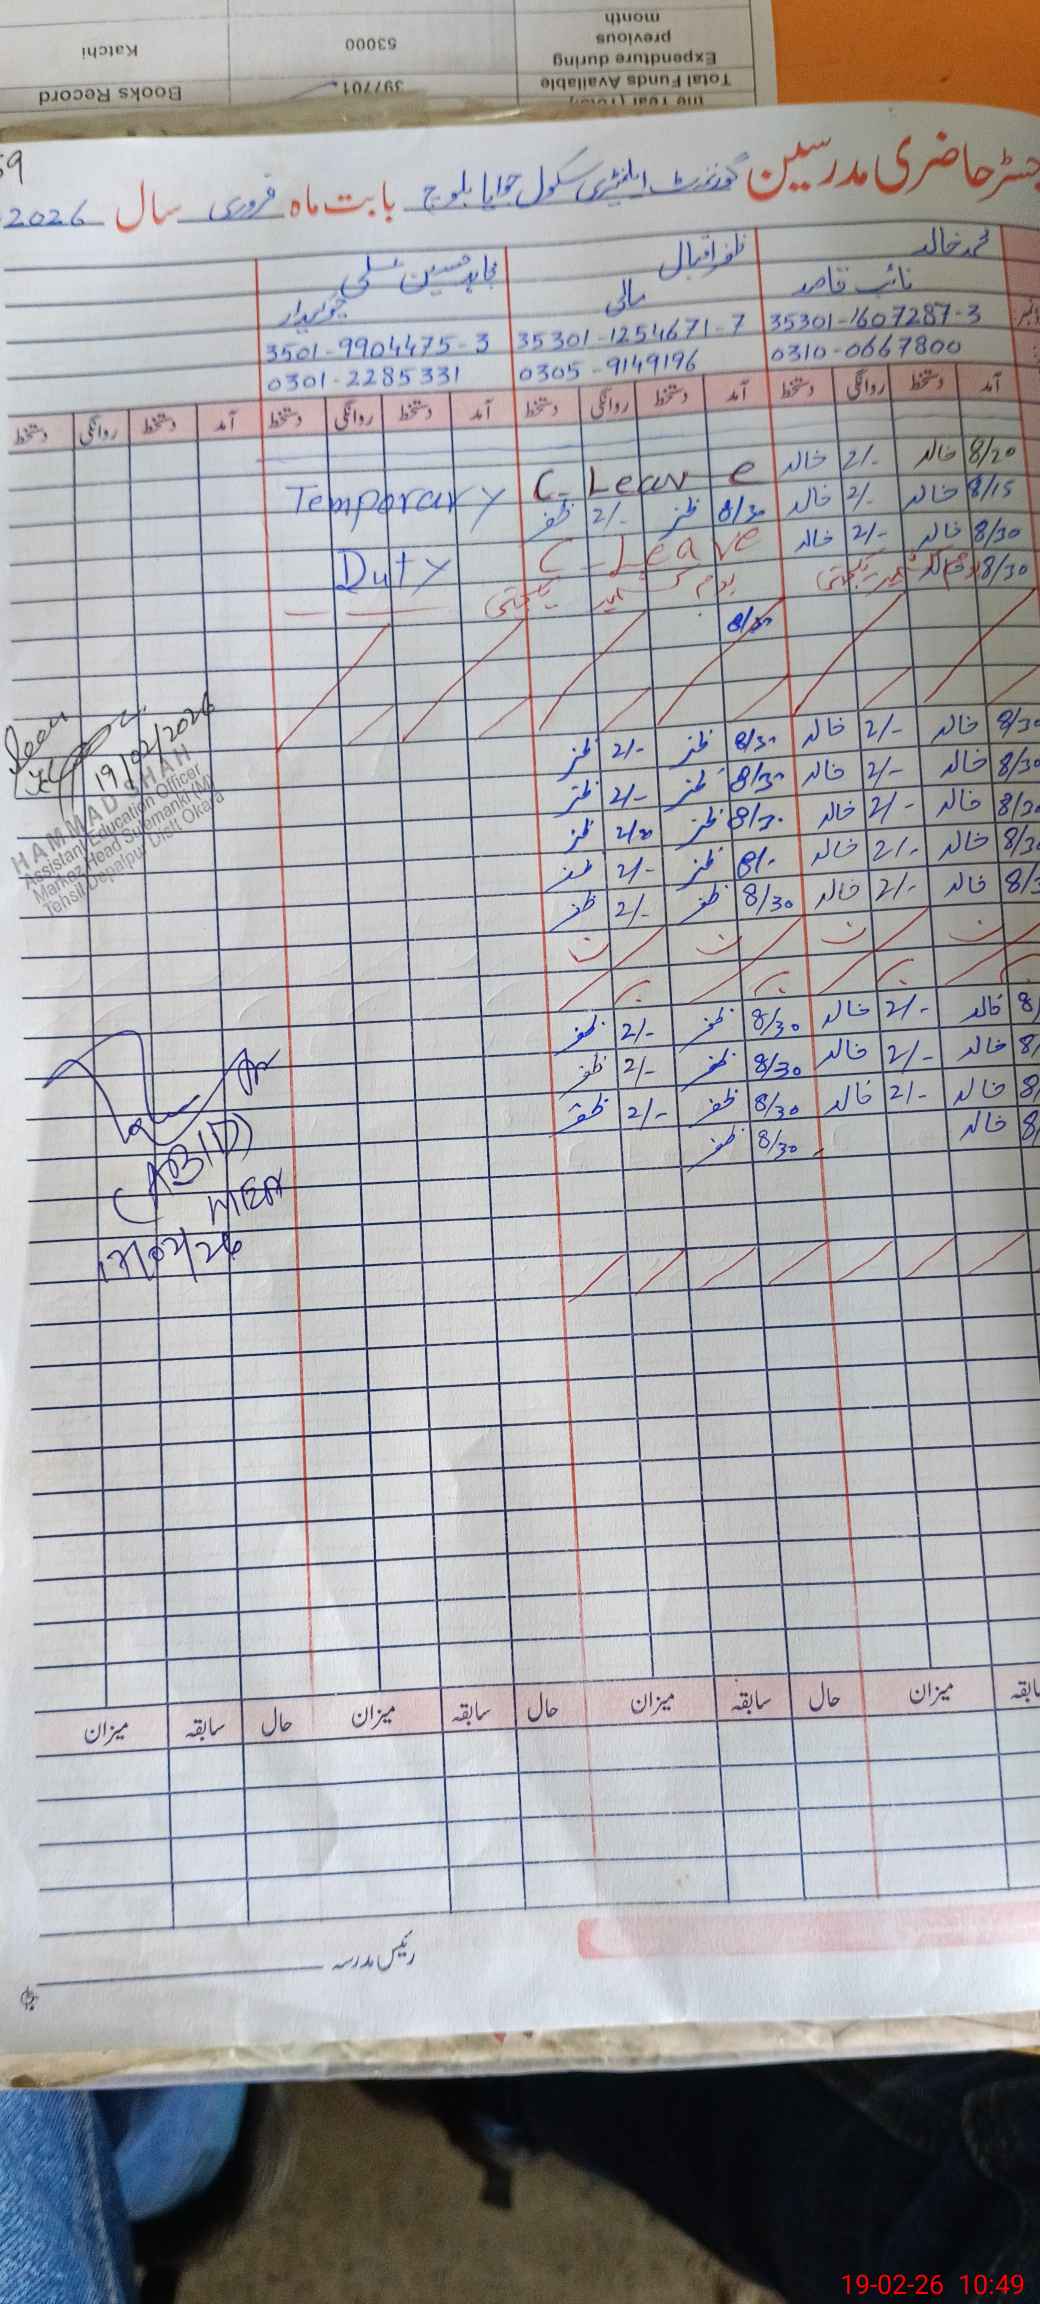 month
previous
Expenditure during
53000
Katchi
Total Funds Available
397701
Books Record
رجسٹر حاضری مدرسین گورنمنٹ ایلیمنٹری سکول جوایا بلوچ بابت ماہ فروری سال 2026
59
محمد خالد
ظفر اقبال
مجاہد حسین سلمی
نائب قاصد
مالی
چوکیدار
35301-1607287-3
35301-1254671-7
3501-9904475-3
0310-0667800
0305-9149196
0301-2285331
آمد دستخط روانگی دستخط آمد دستخط روانگی دستخط آمد دستخط روانگی دستخط آمد دستخط روانگی دستخط
8/20 خالد 2/- خالد C. Leave
8/15 خالد 2/- خالد 8/30 ظفر 2/- ظفر Temporary
8/30 خالد 2/- خالد C-Leave
Duty
8/30 خالد یوم کشمیر یکجہتی یوم کشمیر یکجہتی
8/30
8/30 خالد 2/- خالد 8/30 ظفر 2/- ظفر
8/30 خالد 2/- خالد 8/30 ظفر 2/- ظفر
8/30 خالد 2/- خالد 8/30 ظفر 2/30 ظفر
8/30 خالد 2/- خالد 8/- ظفر 2/- ظفر
8/3 خالد 2/- خالد 8/30 ظفر 2/- ظفر
8/ خالد 2/- خالد 8/30 ظفر 2/- ظفر
8/ خالد 2/- خالد 8/30 ظفر 2/- ظفر
8/ خالد 2/- خالد 8/30 ظفر 2/- ظفر
8/ خالد 8/30 ظفر
Seen
19/02/2026
HAMMAD SHAH
Assistant Education Officer
Markaz Head Sulemanki (M)
Tehsil Depalpur Distt Okara
(ABID)
MEA
17/02/26
سابقہ میزان حال سابقہ میزان حال سابقہ میزان حال سابقہ میزان
رئیس مدرسہ
19-02-26 10:49